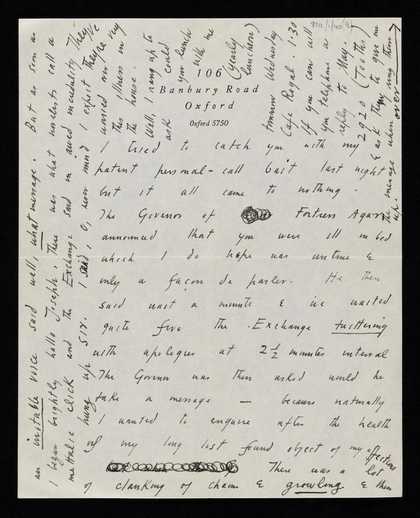 106
Banbury Road
Oxford
Oxford 5750
I tried to catch you with my
patent personal-call bait last night
but it all came to nothing.
The Governor of Fortress Agars
announced that you were ill in bed
which I do hope was untrue &
only a façon de parler. He then
said wait a minute & we waited
quite five the Exchange tuttering
with apologies at 2½ minutes interval
The Governor was then asked would he
take a message — because naturally
I wanted to enquire after the health
of my long lost found object of my affections
There was a lot
of clanking of chains & growling & then
an irritable voice said well, what message. But as soon as
I began brightly hallo Joseph, there was what novelists call a
metallic click and the Exchange said in awed incredulity They've
hung up sir. I said, O, never mind I expect they're very
worried over
this illness in
the house.
Well, I rang up to
ask could
you lunch
with me
(yearly
luncheon)
tomorrow Wednesday
Cafe Royal 1.30
If you can will
you telephone a
reply to May.
2920 (Tooth)
& ask them to give me
the message when I ring them
up.
over